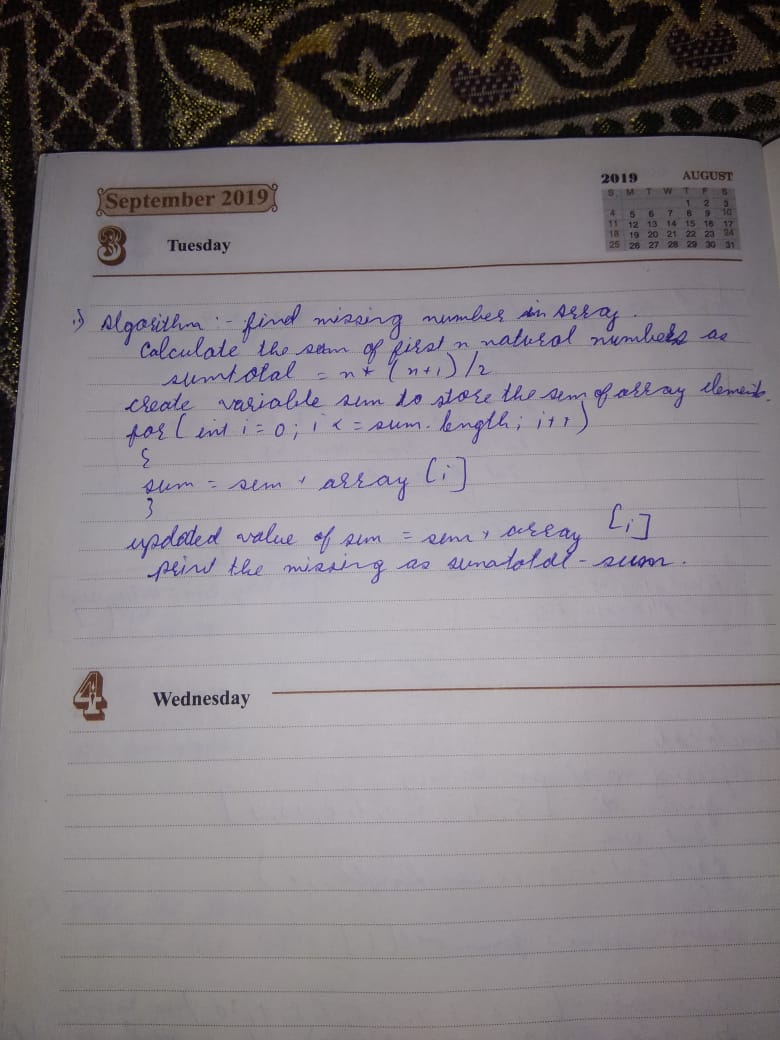 2019 AUGUST
S M T W T F S
1 2 3
4 5 6 7 8 9 10
11 12 13 14 15 16 17
18 19 20 21 22 23 24
25 26 27 28 29 30 31
September 2019
3 Tuesday
1) Algorithm :- find missing number in Array.
Calculate the sum of first n natural numbers as
sumtotal = n * (n+1) /2
create variable sum to store the sum of array elements.
for ( int i = 0; i <= sum. length; i++)
{
sum = sum + array [i]
}
updated value of sum = sum + array [i]
print the missing as sumatotal - sum.
4 Wednesday